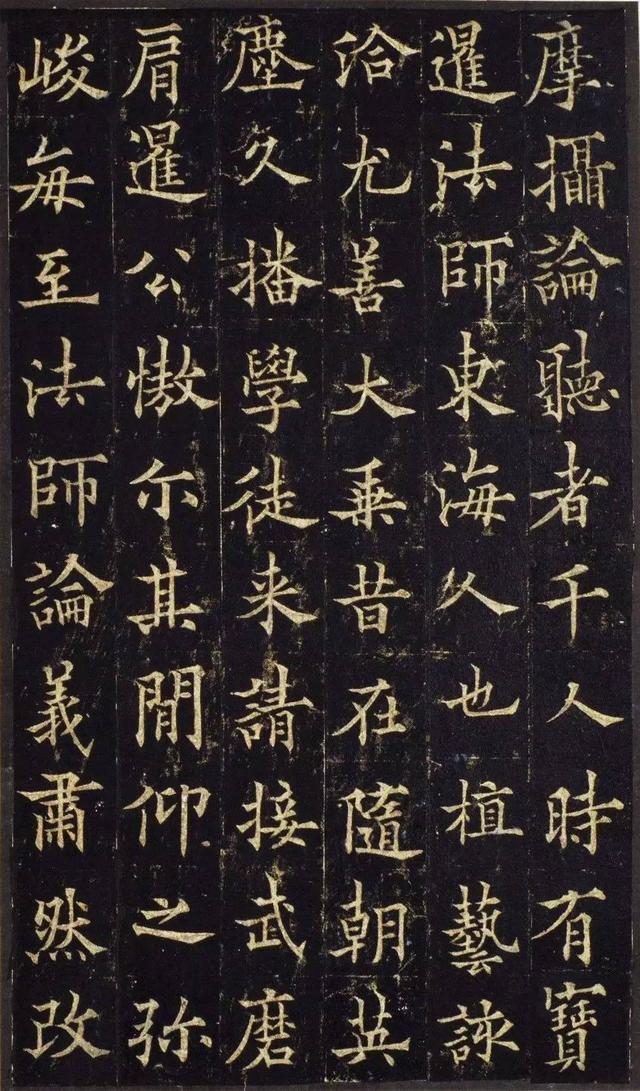 摩攝論聽者千人時有寶
暹法師東海人也植藝該
洽尤善大乗昔在隨朝英
塵久播學徒来請接武磨
肩暹公慠尔其閒仰之弥
峻每至法師論義肅然改